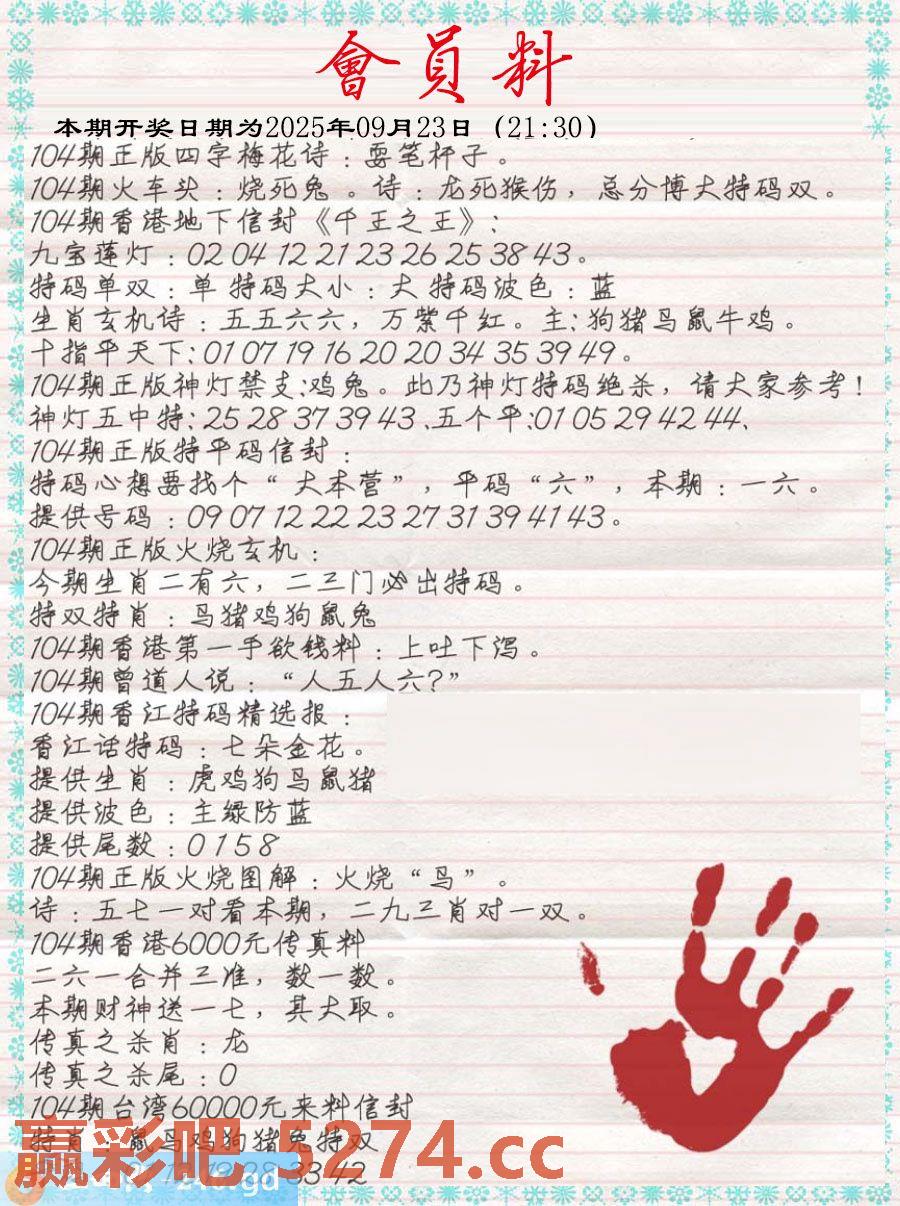 會員料
本期开奖日期为2025年09月23日（21:30）
104期正版四字梅花诗：耍笔杆子。
104期火车头：烧死兔 。诗：龙死猴伤，总分博大特码双。
104期香港地下信封《千王之王》：
九宝莲灯：02 04 12 21 23 26 25 38 43。
特码单双：单 特码大小：大 特码波色：蓝
生肖玄机诗：五五六六，万紫千红。主：狗猪马鼠牛鸡。
十指平天下：01 07 19 16 20 20 34 35 39 49。
104期正版神灯禁支：鸡兔。此乃神灯特码绝杀，请大家参考！
神灯五中特：25 28 37 39 43 、五个平：01 05 29 42 44、
104期正版特平码信封：
特码心想要找个“ 大本营”，平码“六”，本期：一六。
提供号码：09 07 12 22 23 27 31 39 41 43。
104期正版火烧玄机：
今期生肖二有六，二三门必出特码。
特双特肖：马猪鸡狗鼠兔
104期香港第一手欲钱料：上吐下泻。
104期曾道人说：“人五人六?”
104期香江特码精选报：
香江话特码：七朵金花。
提供生肖：虎鸡狗马鼠猪
提供波色：主绿防蓝
提供尾数：0 1 5 8
104期正版火烧图解：火烧“马”。
诗：五七一对看本期，二九三肖对一双。
104期香港6000元传真料
二六一合并三准，数一数。
本期财神送一七，其大取。
传真之杀肖：龙
传真之杀尾：0
104期台湾60000元来料信封
特肖：鼠马鸡狗猪兔特双
赢彩吧.5274.cc
33 42